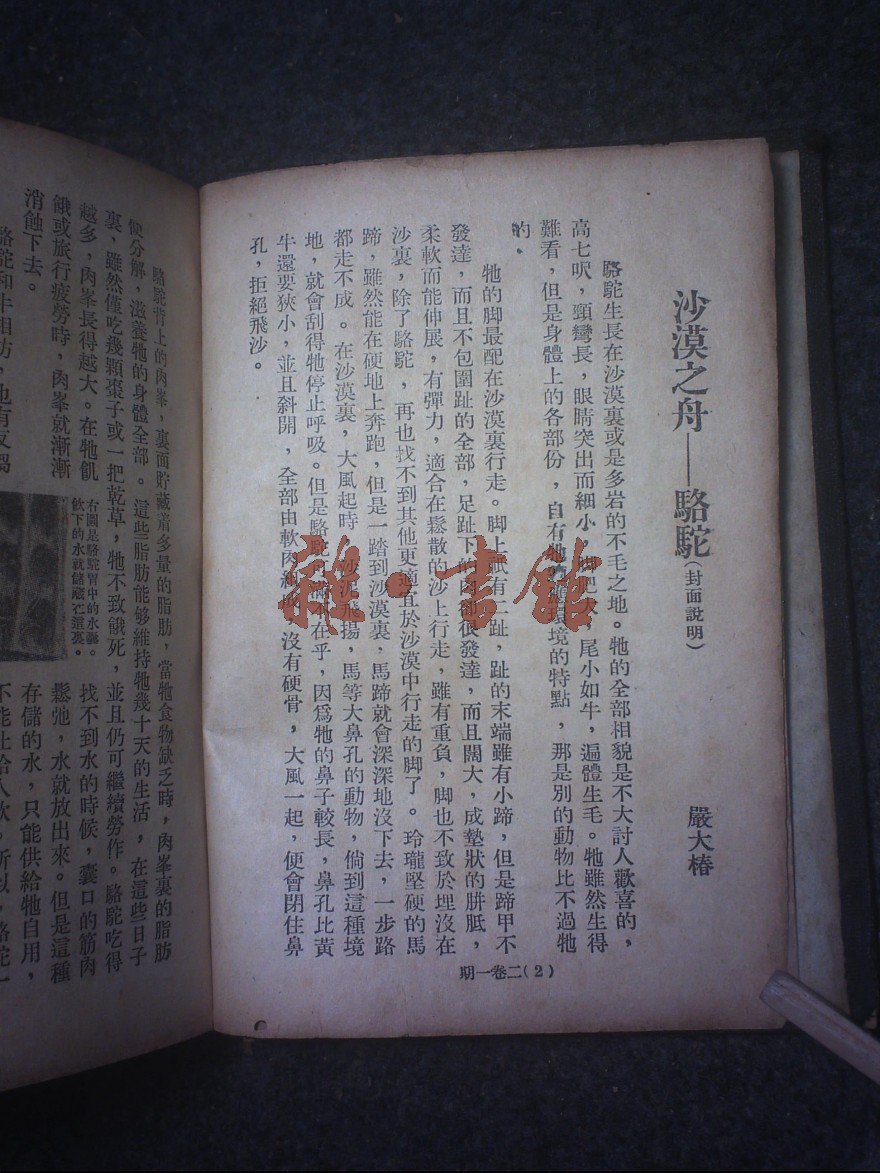 沙漠之舟——駱駝(封面說明)
嚴大椿
駱駝生長在沙漠裏或是多岩的不毛之地。牠的全部相貌是不大討人歡喜的,
高七呎,頸彎長,眼睛突出而細小,脚肥大,尾小如牛,遍體生毛。牠雖然生得
難看,但是身體上的各部份,自有牠適應環境的特點,那是別的動物比不過牠
的。
牠的脚最配在沙漠裏行走。脚上祇有二趾,趾的末端雖有小蹄,但是蹄甲不
發達,而且不包圍趾的全部,足趾下的肉卻很發達,而且闊大,成墊狀的胼胝,
柔軟而能伸展,有彈力,適合在鬆散的沙上行走,雖有重負,脚也不致於埋沒在
沙裏,除了駱駝,再也找不到其他更適宜於沙漠中行走的脚了。玲瓏堅硬的馬
蹄,雖然能在硬地上奔跑,但是一踏到沙漠裏,馬蹄就會深深地沒下去,一步路
都走不成。在沙漠裏,大風起時,沙泥飛揚,馬等大鼻孔的動物,倘到這種境
地,就會刮得牠停止呼吸。但是駱駝滿不在乎,因爲牠的鼻子較長,鼻孔比黃
牛還要狹小,並且斜開,全部由軟肉組成,沒有硬骨,大風一起,便會閉住鼻
孔,拒絕飛沙。
期一卷二(2)
駱駝背上的肉峯,裏面貯藏着多量的脂肪,當牠食物缺乏時,肉峯裏的脂肪
便分解,滋養牠的身體全部。這些脂肪能够維持牠幾十天的生活,在這些日子
裏,雖然僅吃幾顆棗子或一把乾草,牠不致餓死,並且仍可繼續勞作。駱駝吃得
越多,肉峯長得越大。在牠飢
餓或旅行疲勞時,肉峯就漸漸
消蝕下去。
駱駝和牛相仿,也有反芻
右圖是駱駝胃中的水囊。
飲下的水就儲藏在這裏。
找不到水的時候,囊口的筋肉
鬆弛,水就放出來。但是這種
存儲的水,只能供給牠自用,
雜·書館